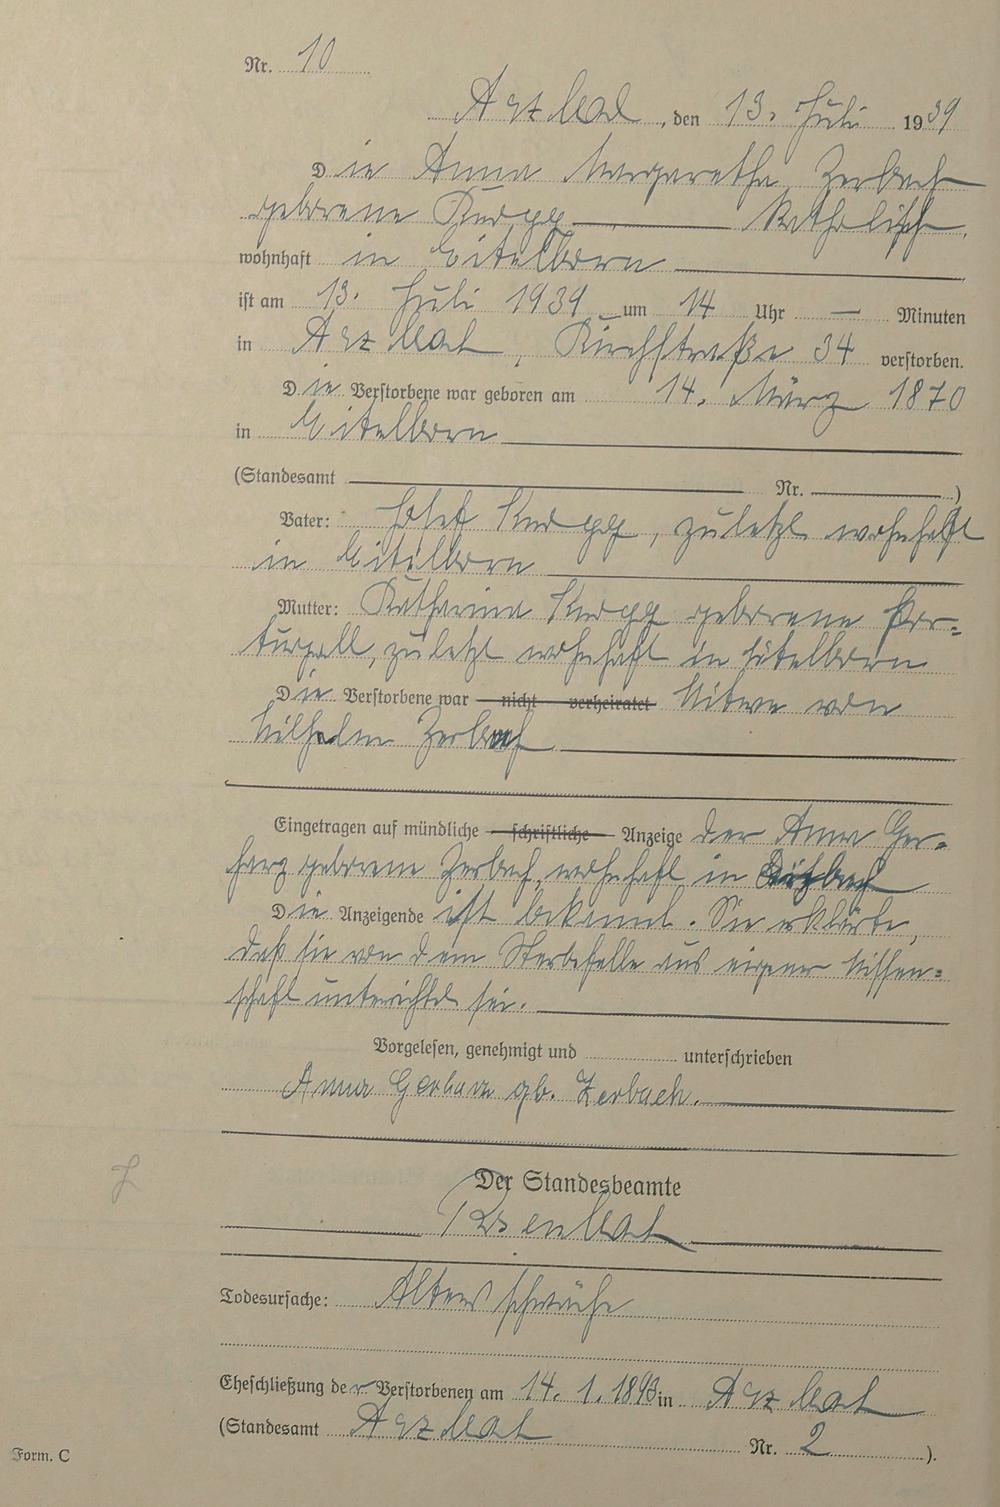 Nr. 10
Arzbach, den 13. Juli 1939
Die Anna Margaretha Zerbach
geborene Knopp katholisch,
wohnhaft in Eitelborn
ist am 13. Juli 1939 um 14 Uhr — Minuten
in Arzbach, Kirchstraße 34 verstorben.
Die Verstorbene war geboren am 14. März 1870
in Eitelborn
(Standesamt Nr. )
Vater: Josef Knopp, zuletzt wohnhaft
in Eitelborn
Mutter: Katharina Knopp geborene Por-
tugall, zuletzt wohnhaft in Eitelborn
Die Verstorbene war nicht verheiratet Witwe von
Wilhelm Zerbach
Eingetragen auf mündliche schriftliche Anzeige der Anna Ger-
harz geborene Zerbach, wohnhaft in Arzbach
Die Anzeigende ist bekannt. Sie erklärte,
daß sie von dem Sterbefalle aus eigener Wissen-
schaft unterrichtet sei.
Vorgelesen, genehmigt und unterschrieben
Anna Gerharz gb. Zerbach.
Der Standesbeamte
Todesursache: Altersschwäche
Eheschließung der Verstorbenen am 14. 1. 1893 in Arzbach
(Standesamt Arzbach Nr. 2 ).
Form. C